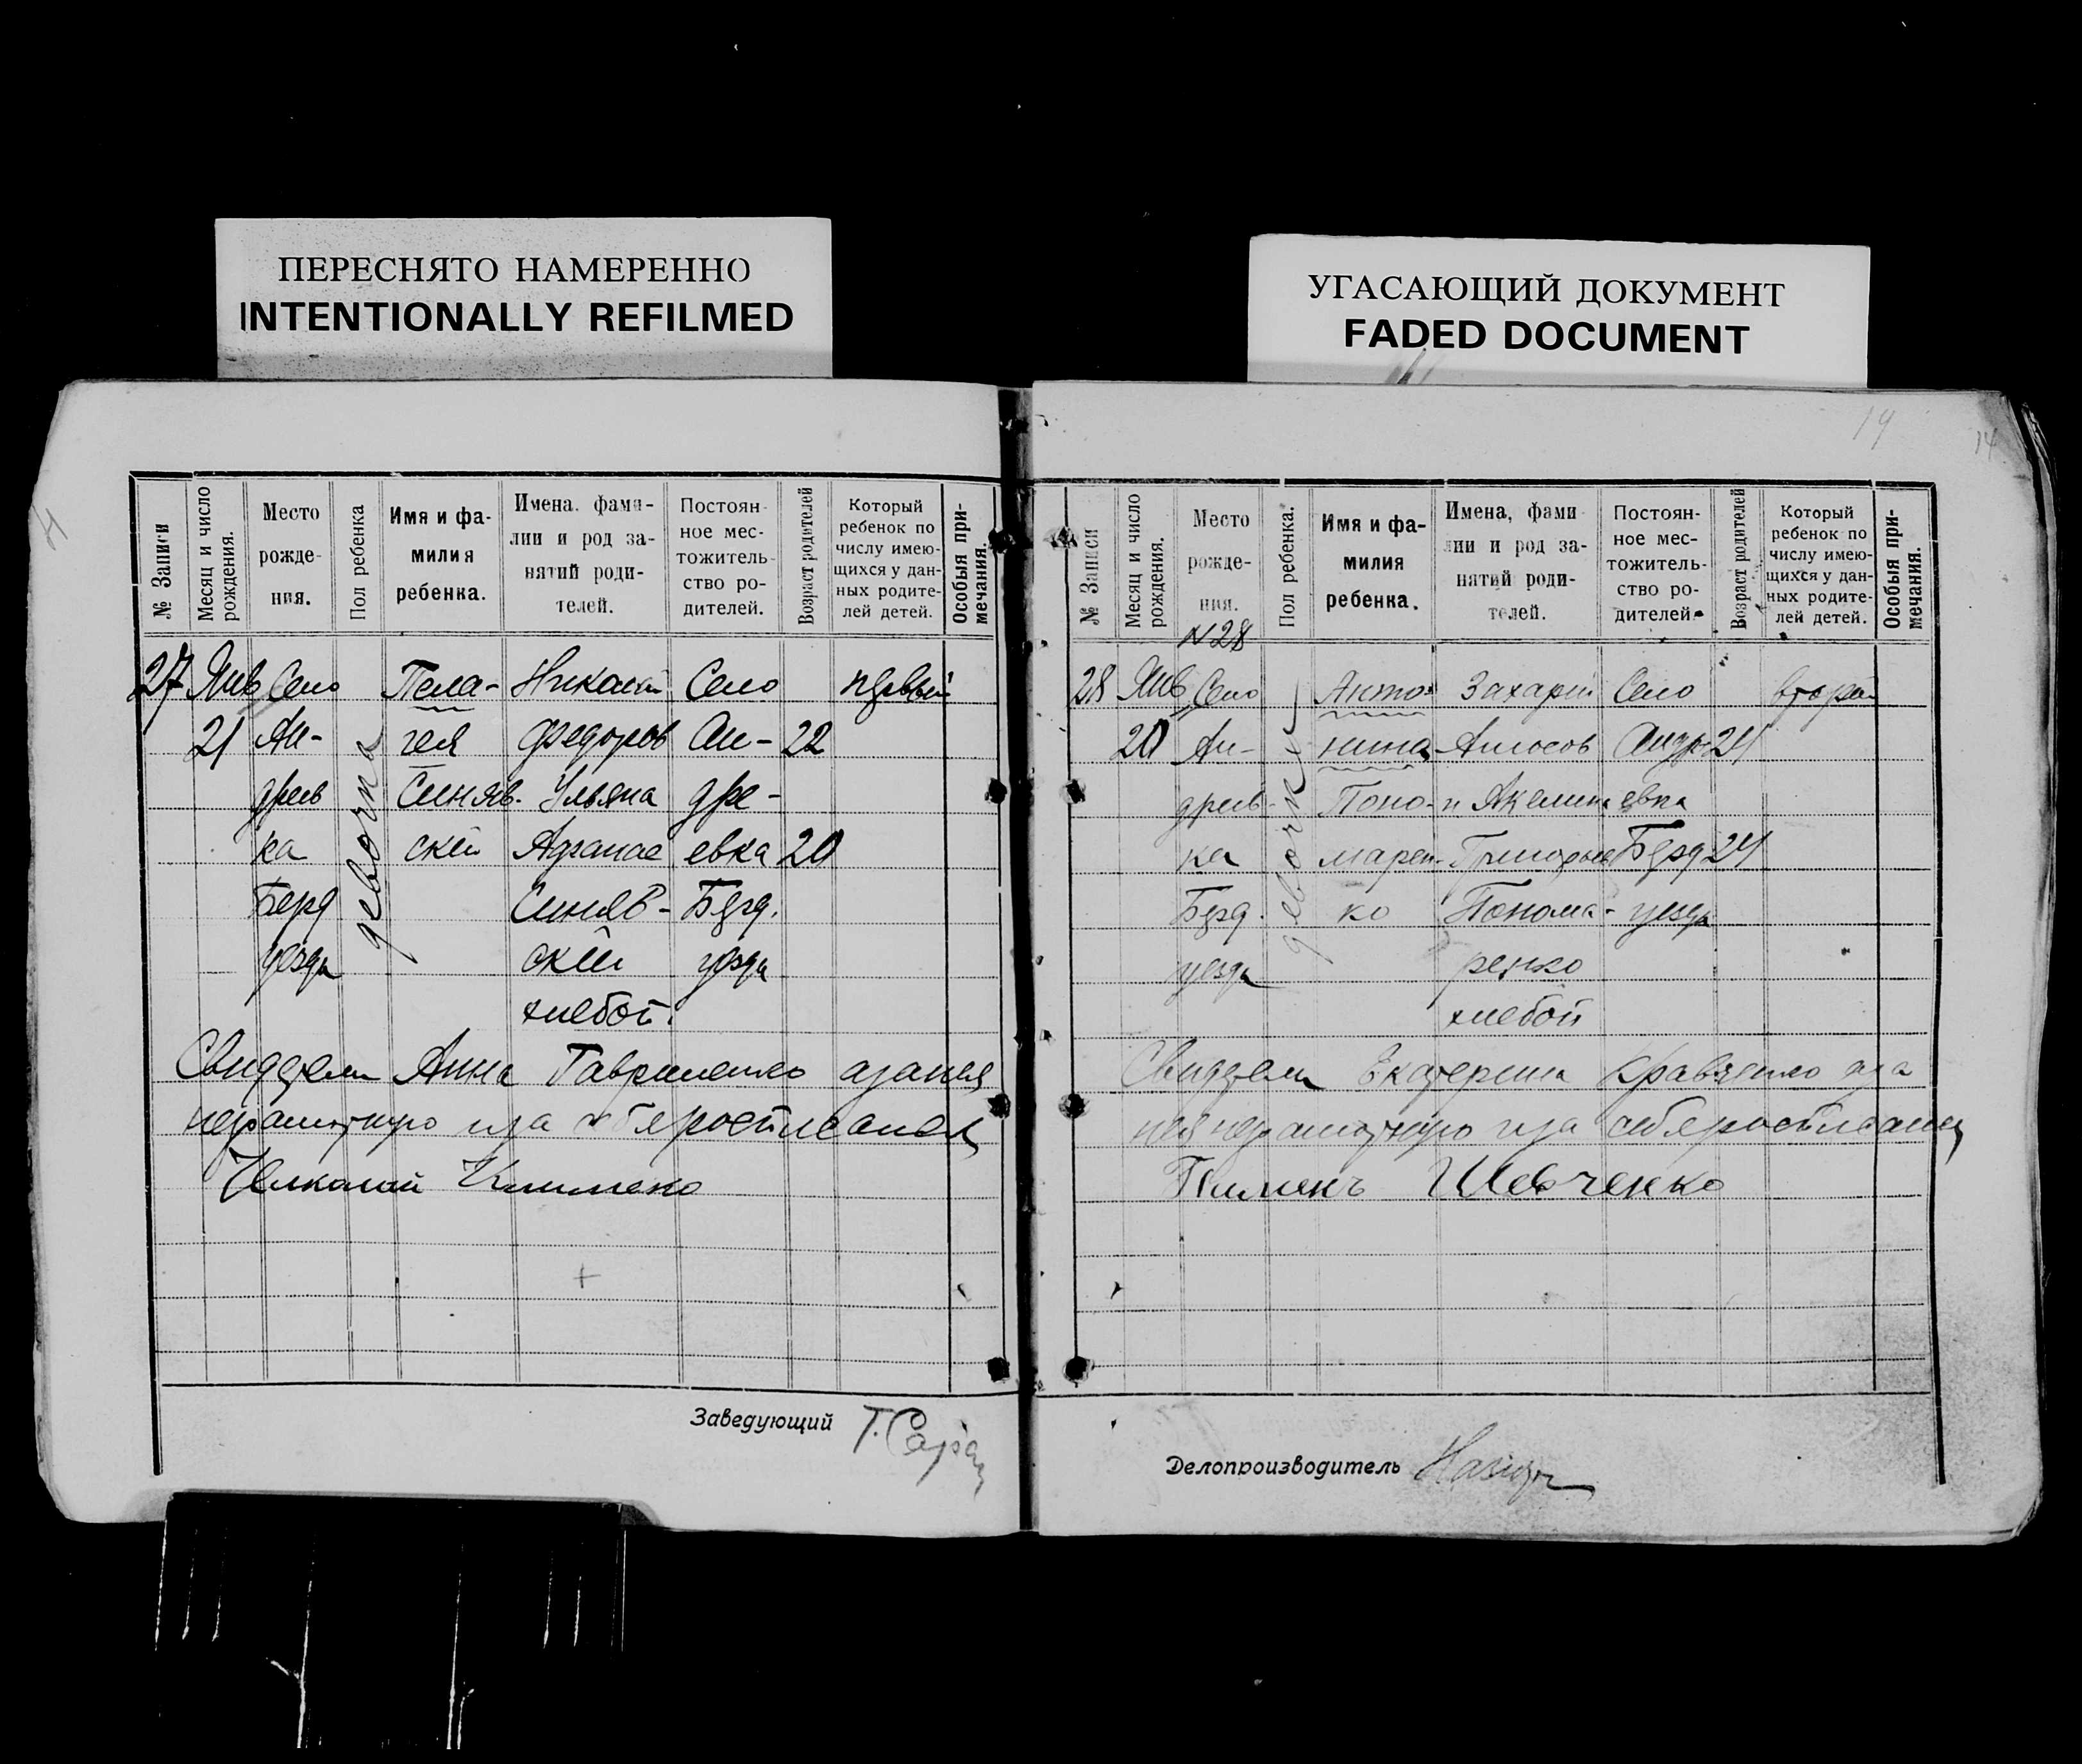 ПЕРЕСНЯТО НАМЕРЕННО
INTENTIONALLY REFILMED
УГАСАЮЩИЙ ДОКУМЕНТ
FADED DOCUMENT
№ Записи
Месяц и число рождения.
Место рожде-ния.
Пол ребенка
Имя и фа-милия ребенка.
Имена. фами-лии и род за-нятий роди-телей.
Постоян-ное мес-тожитель-ство ро-дителей.
Возраст родителей
Который ребенок по числу имею-щихся у дан-ных родите-лей детей.
Особыя при-мечания.
27 Янв Село Пела- Николай Село первый
21 Ан- гея Федоров Ан- 22
дреев Синяв. Ульяна дре-
ка ский евка 20
Берд Синяв- Берд.
уезда ский уезда
хлебоп.
девочка
Анна Гавриленко
неграмотную
Николай Клименко
Заведующий
19
14
№ Записи
Месяц и число рождения.
Место рожде-ния.
Пол ребенка.
Имя и фа-милия ребенка.
Имена, фами лии и род за-нятий роди-телей.
Постоян-ное мес-тожитель-ство ро-дителей.
Возраст родителей
Который ребенок по числу имею-щихся у дан-ных родите-лей детей.
Особыя при-мечания.
N28
28 Янв Село Анто- Захарий Село второй
20 Ан- нина Амосов Андр- 24
дреев- Поно- и Акелина евка
ка марен- Григорьев Берд 24
Берд. ко Понома- уезда
уезда ренко
хлебоп
девочка
Екатерина Кравченко
неграмотную
Пимен Шевченко
Делопроизводитель